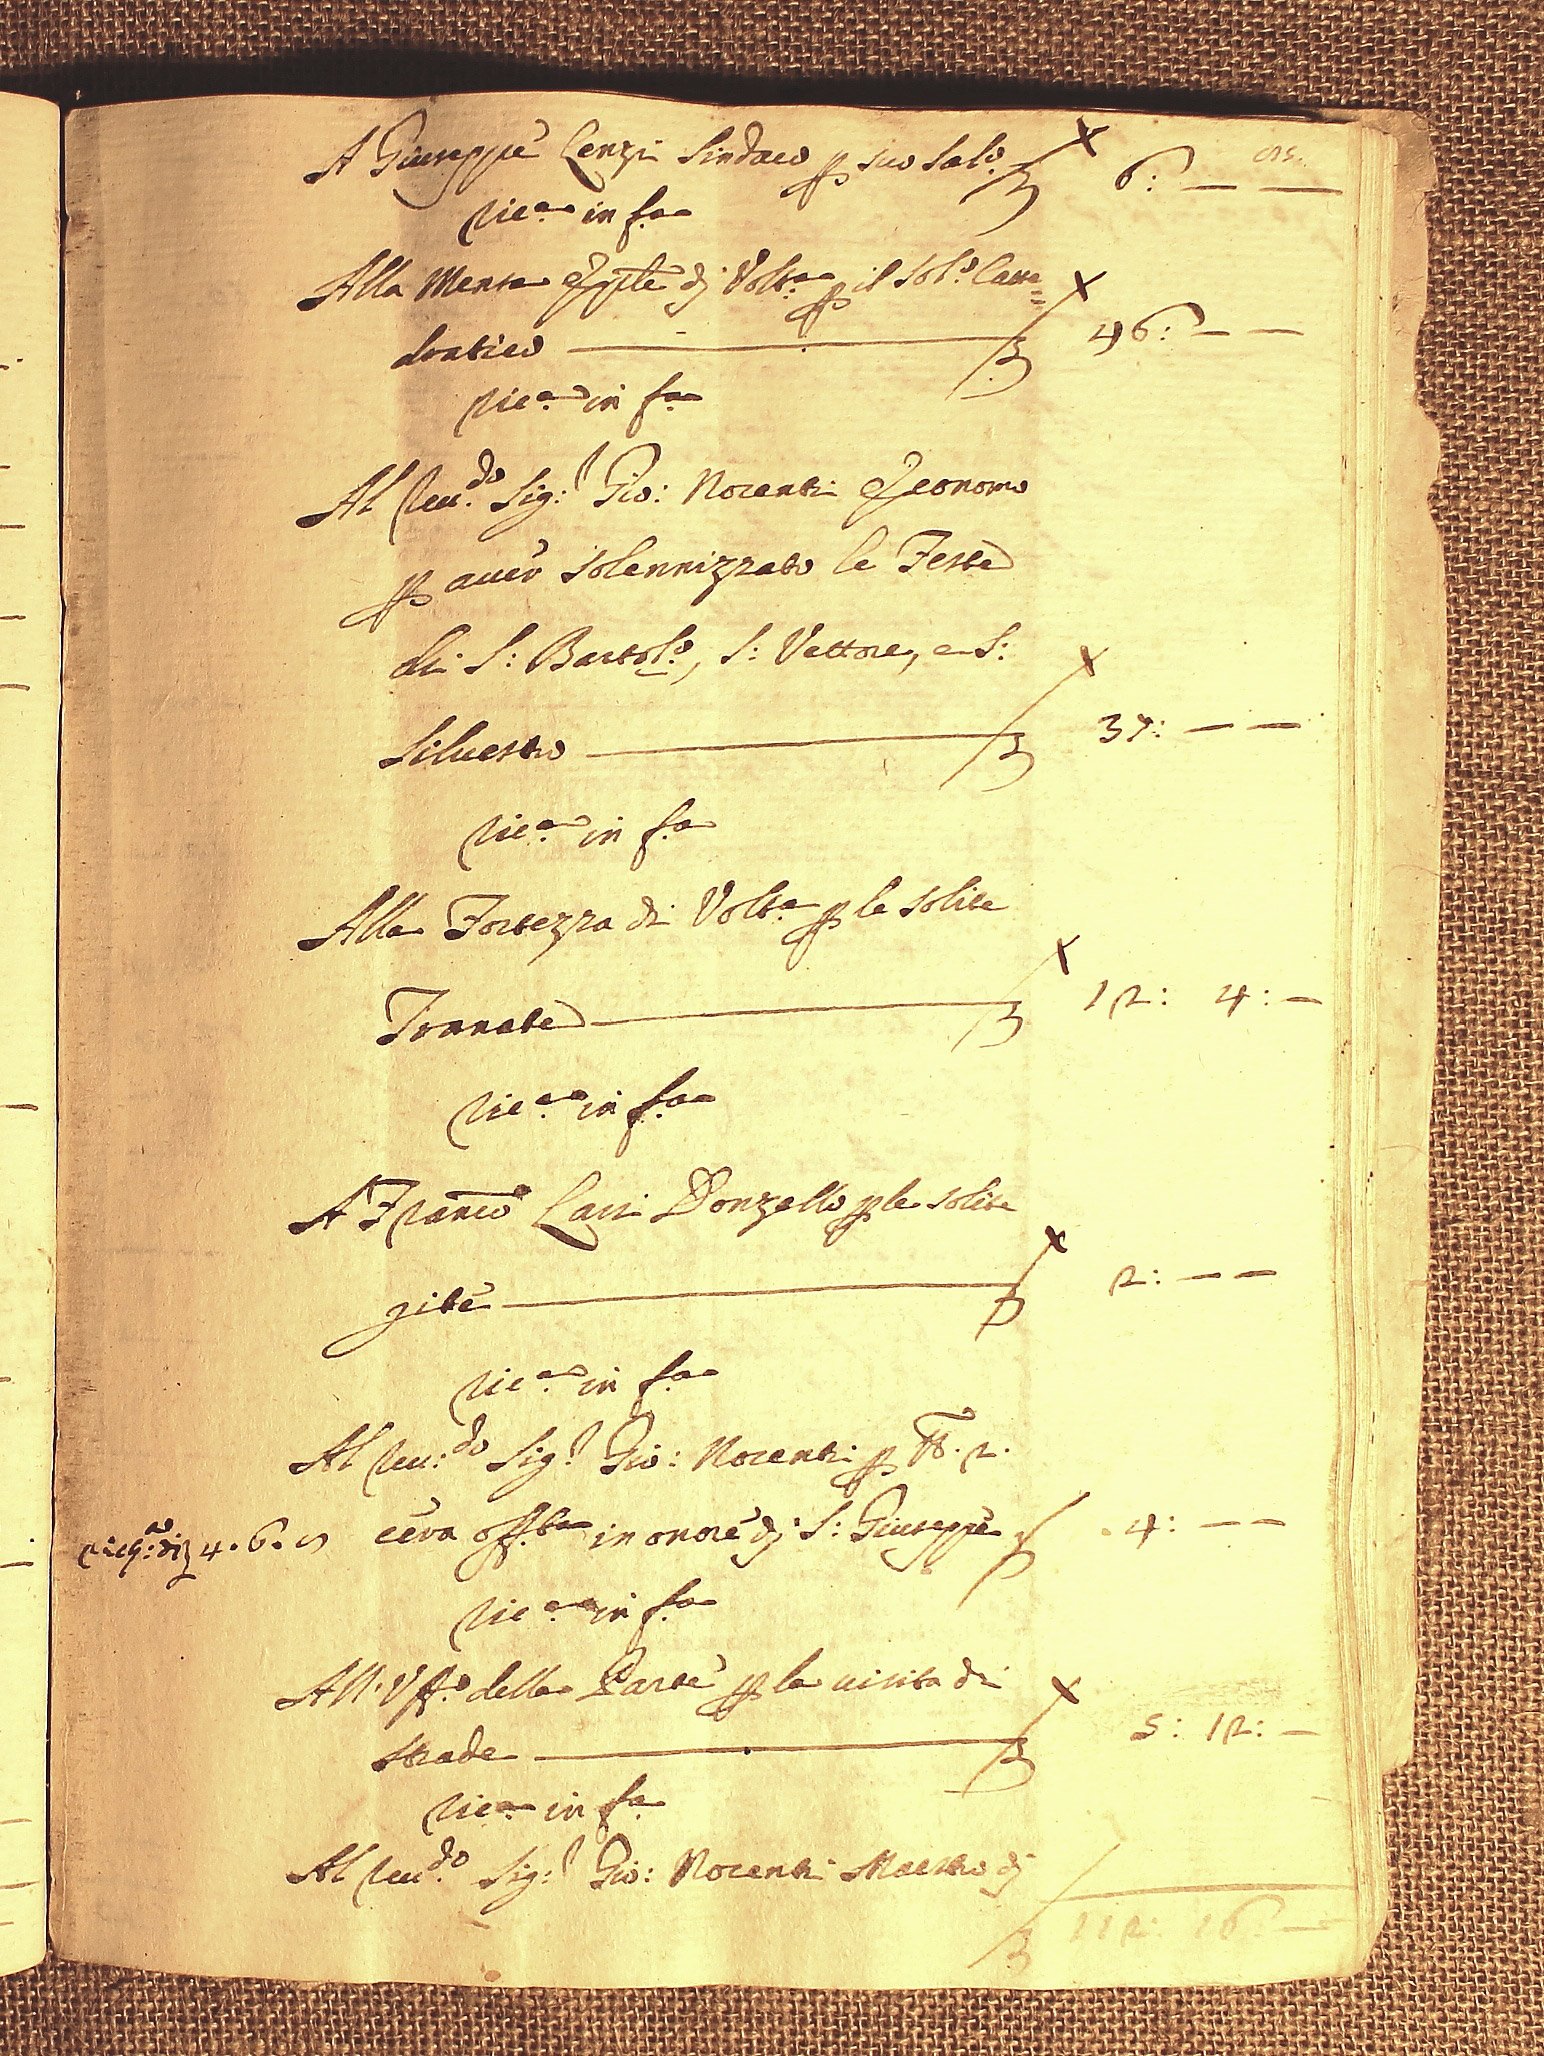 A Giuseppe Cenzi Sindaco p suo Sal.o 6: — —
ric.a in f.a
Alla Mensa Ep̃le di Volt.a p il sol.o Catte=
dratico — 46: — —
ric.a in f.a
Al Reu.do Sig.r Gio: Nocenti Economo
p auer solennizzato le Feste
di S: Bartol.o, S: Vettore, e S:
Siluestro — 37: — —
ric.a in f.a
Alla Fortezza di Volt.a p le solite
Tonnate — 12: 4: —
ric.a in f.a
A Franco Lari Donzello p le solite
gite — 2: — —
ric.a in f.a
Al Reu:do Sig.r Gio: Nocenti p ℔. 2.
cera off.ta in onore di S: Giuseppe 4: — —
4. 6. 
ric.a in f.a
All'Vff.o della Parte p la uisita di
strade — 5: 12: —
ric.a in f.a
Al Reu.do Sig.r Gio: Nocenti Maestro di
112: 16: —